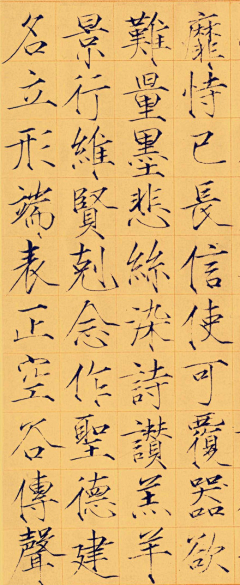 靡恃己長信使可覆器欲
難量墨悲絲染詩讚羔羊
景行維賢剋念作聖德建
名立形端表正空谷傳聲